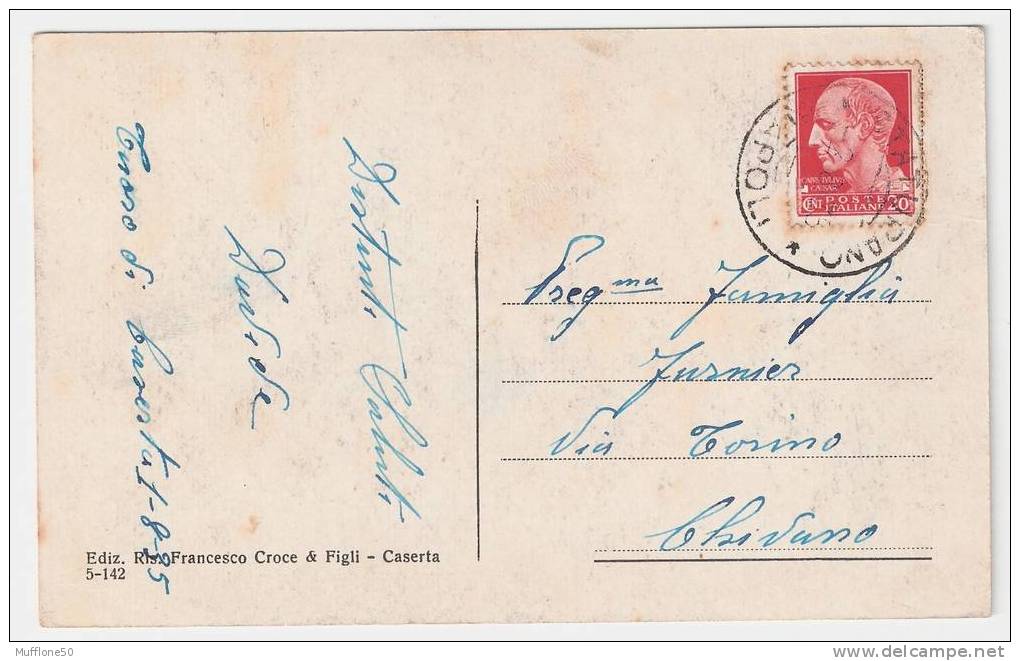 Tuoro di Caserta 1-8-35
Distinti Saluti
Davide
Ediz. Ris. Francesco Croce & Figli - Caserta
5-142
CAIVS IVLIVS
CAESAR
CENT POSTE
ITALIANE 20
NAPOLI
Preg ma Famiglia
Furnier
Via Torino
Chivasso
Mufflone50